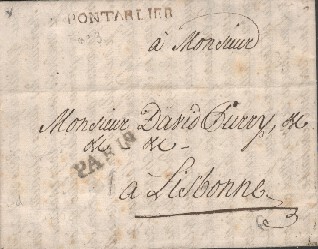 PONTARLIER
à Monsieur
Monsieur David Purry, &c
&c &c
PARIS
à Lisbonne